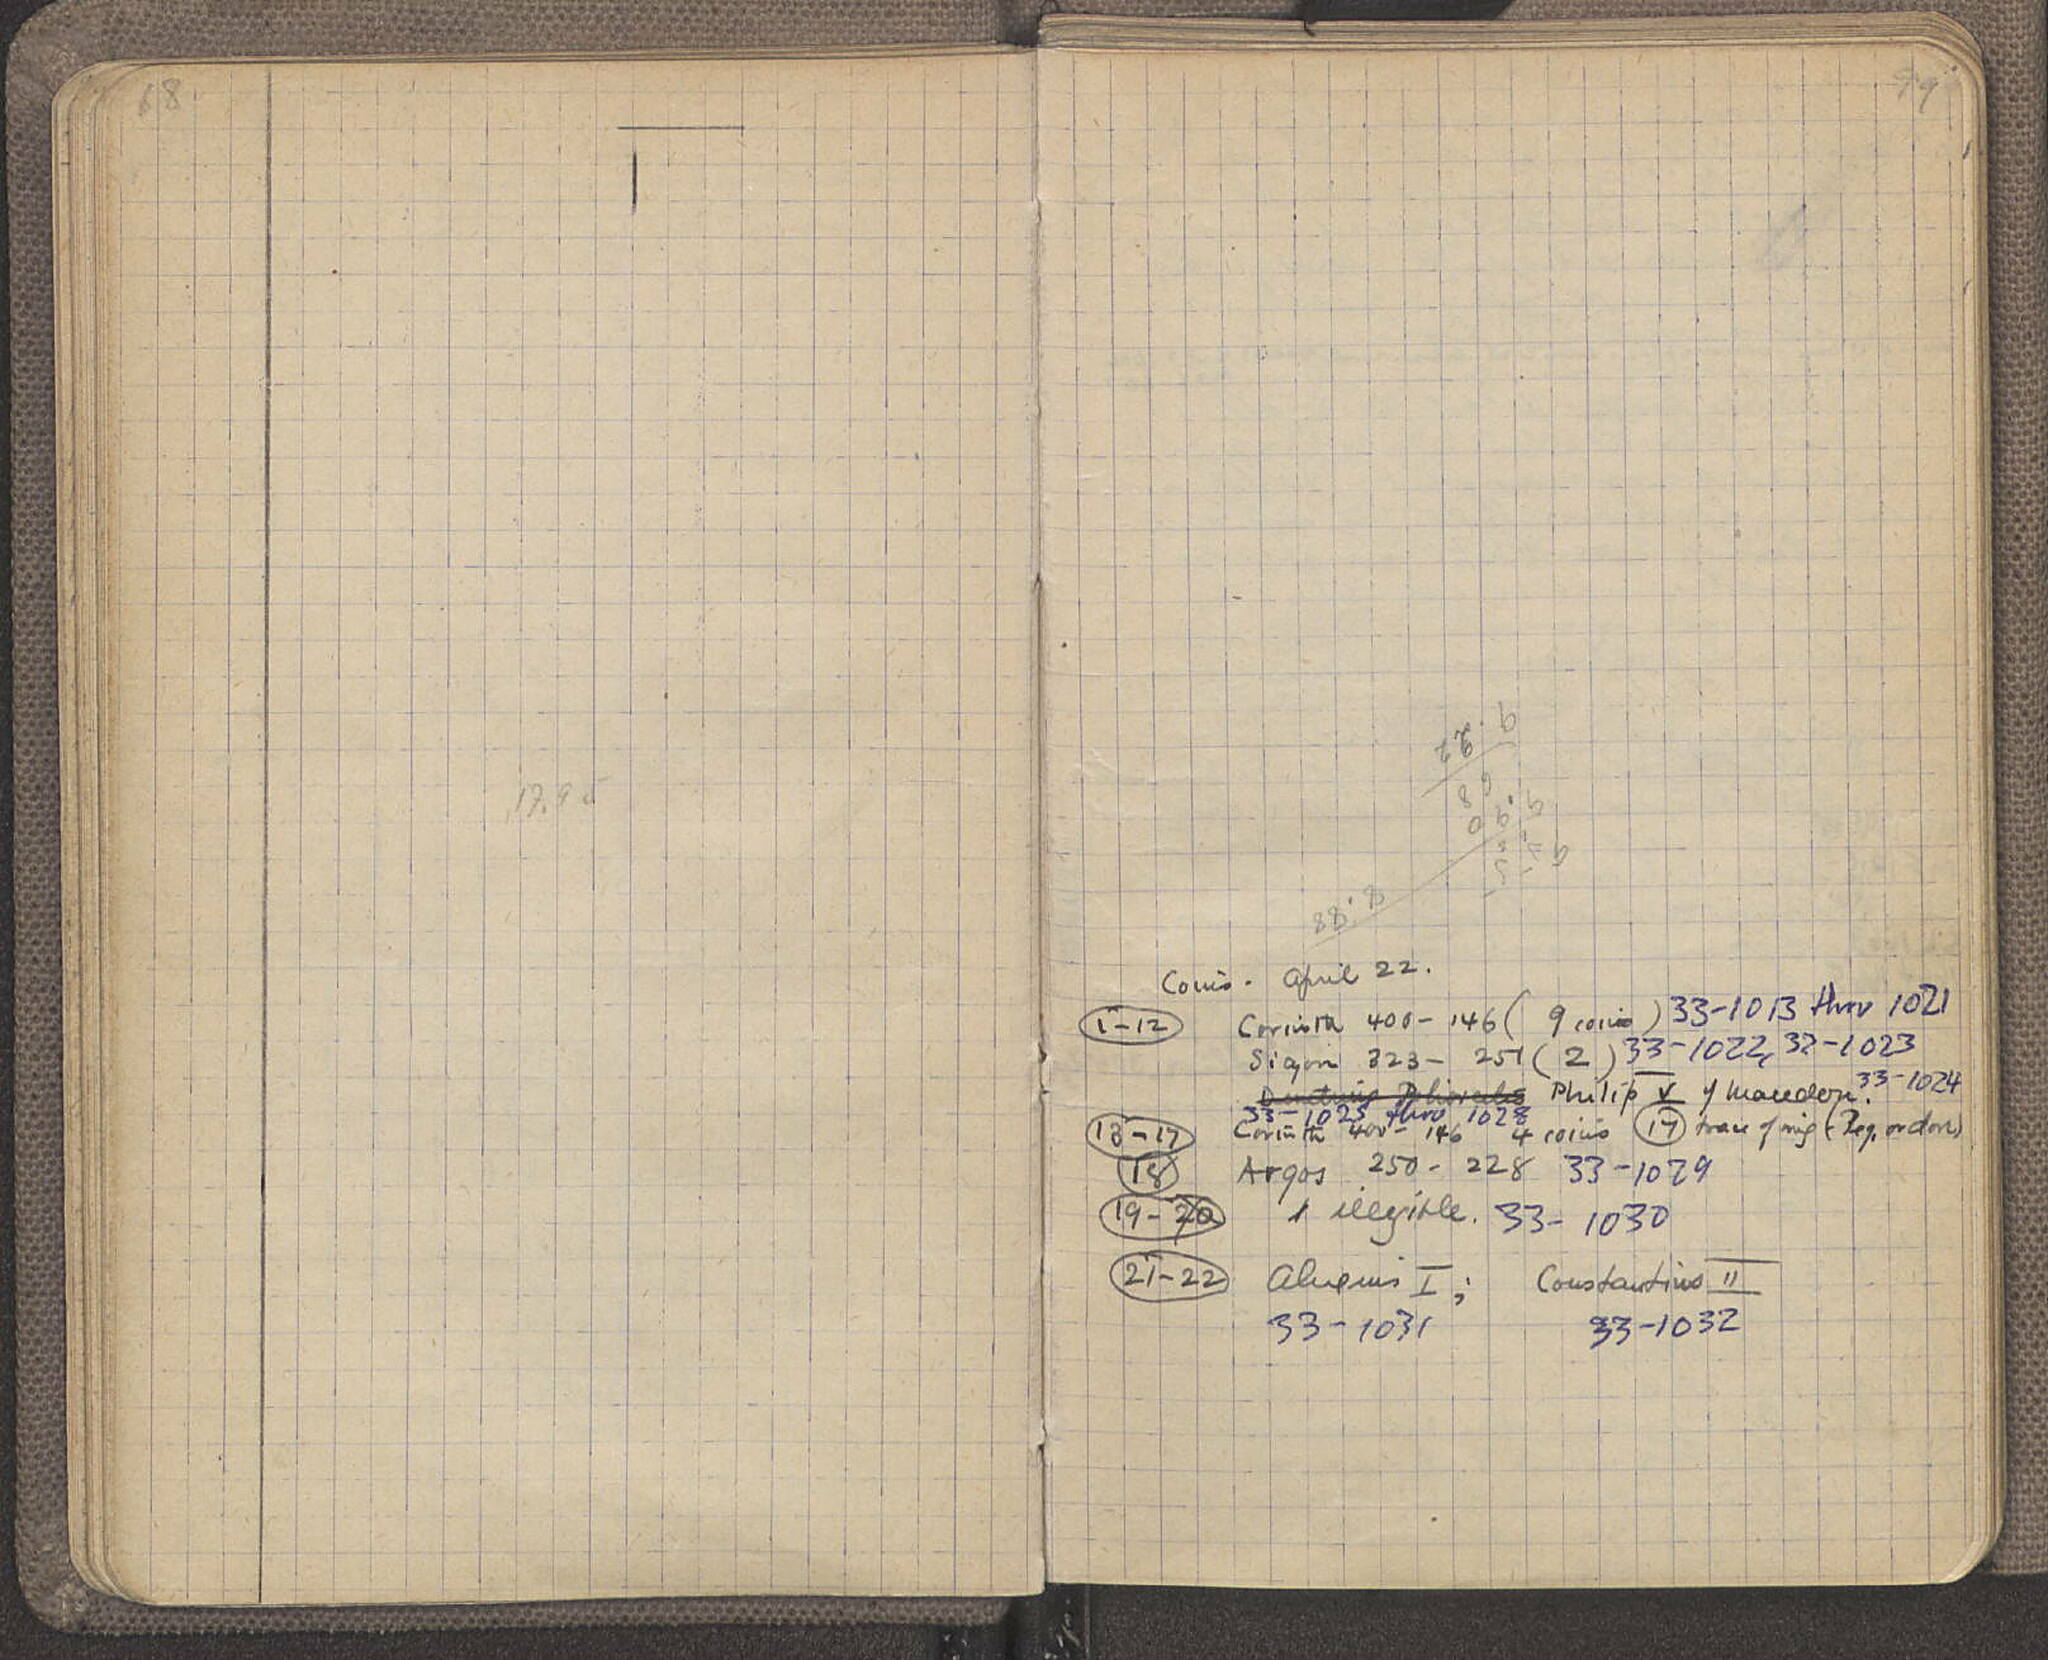 68
17.9
9.22
68
8.88
Coins. April 22.
1-12 Corinth 400-146 ( 9 coins ) 33-1013 thru 1021
Sicyon 323- 251 ( 2 ) 33-1022, 33-1023
Demetrius Poliorcetes Philip V of Macedon. 33-1024
33-1025 thru 1028
13-17 Corinth 400-146 4 coins 17 trace of ring (Peg. or dove)
18 Argos 250-228 33-1029
19-20 1 illegible. 33-1030
21-22 Alexius I; Constantius II
33-1031 33-1032